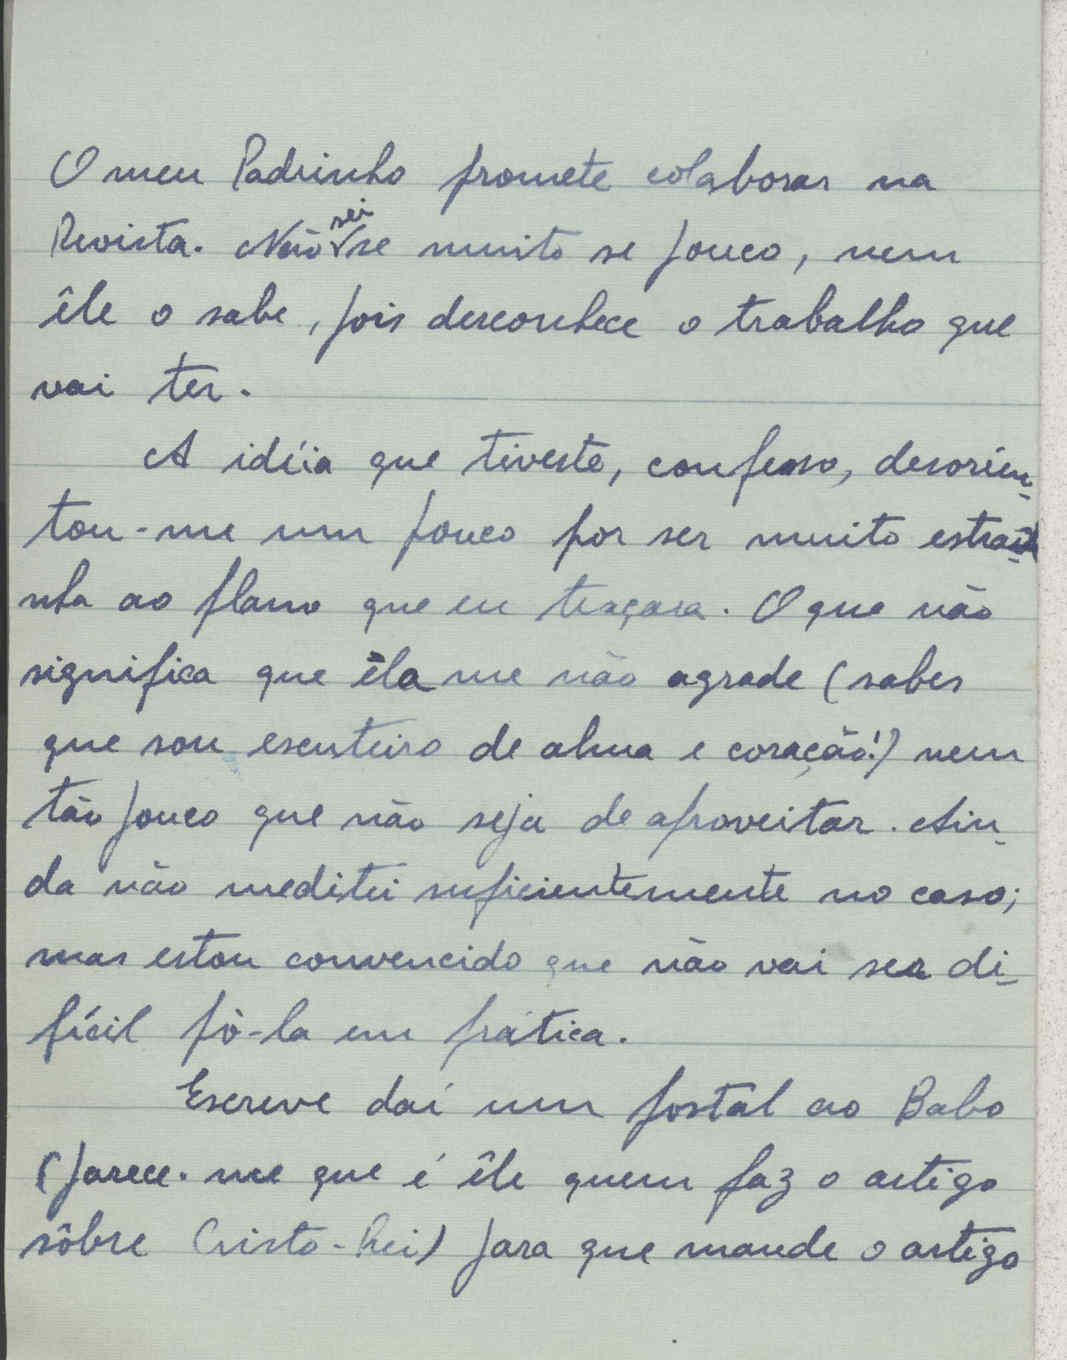 O meu Padrinho promete colaborar na
Revista. Não sei se muito se pouco, nem
êle o sabe, pois desconhece o trabalho que
vai ter.
A idéia que tiveste, confesso, desorien-
tou-me um pouco por ser muito estra-
nha ao plano que eu traçara. O que não
significa que ela me não agrade (sabes
que sou escuteiro de alma e coração!) nem
tão pouco que não seja de aproveitar. Ain-
da não meditei suficientemente no caso;
mas estou convencido que não vai ser di-
fícil pô-la em prática.
Escreve daí um postal ao Babo
(parece-me que é êle quem faz o artigo
sôbre Cristo-Rei) para que mande o artigo